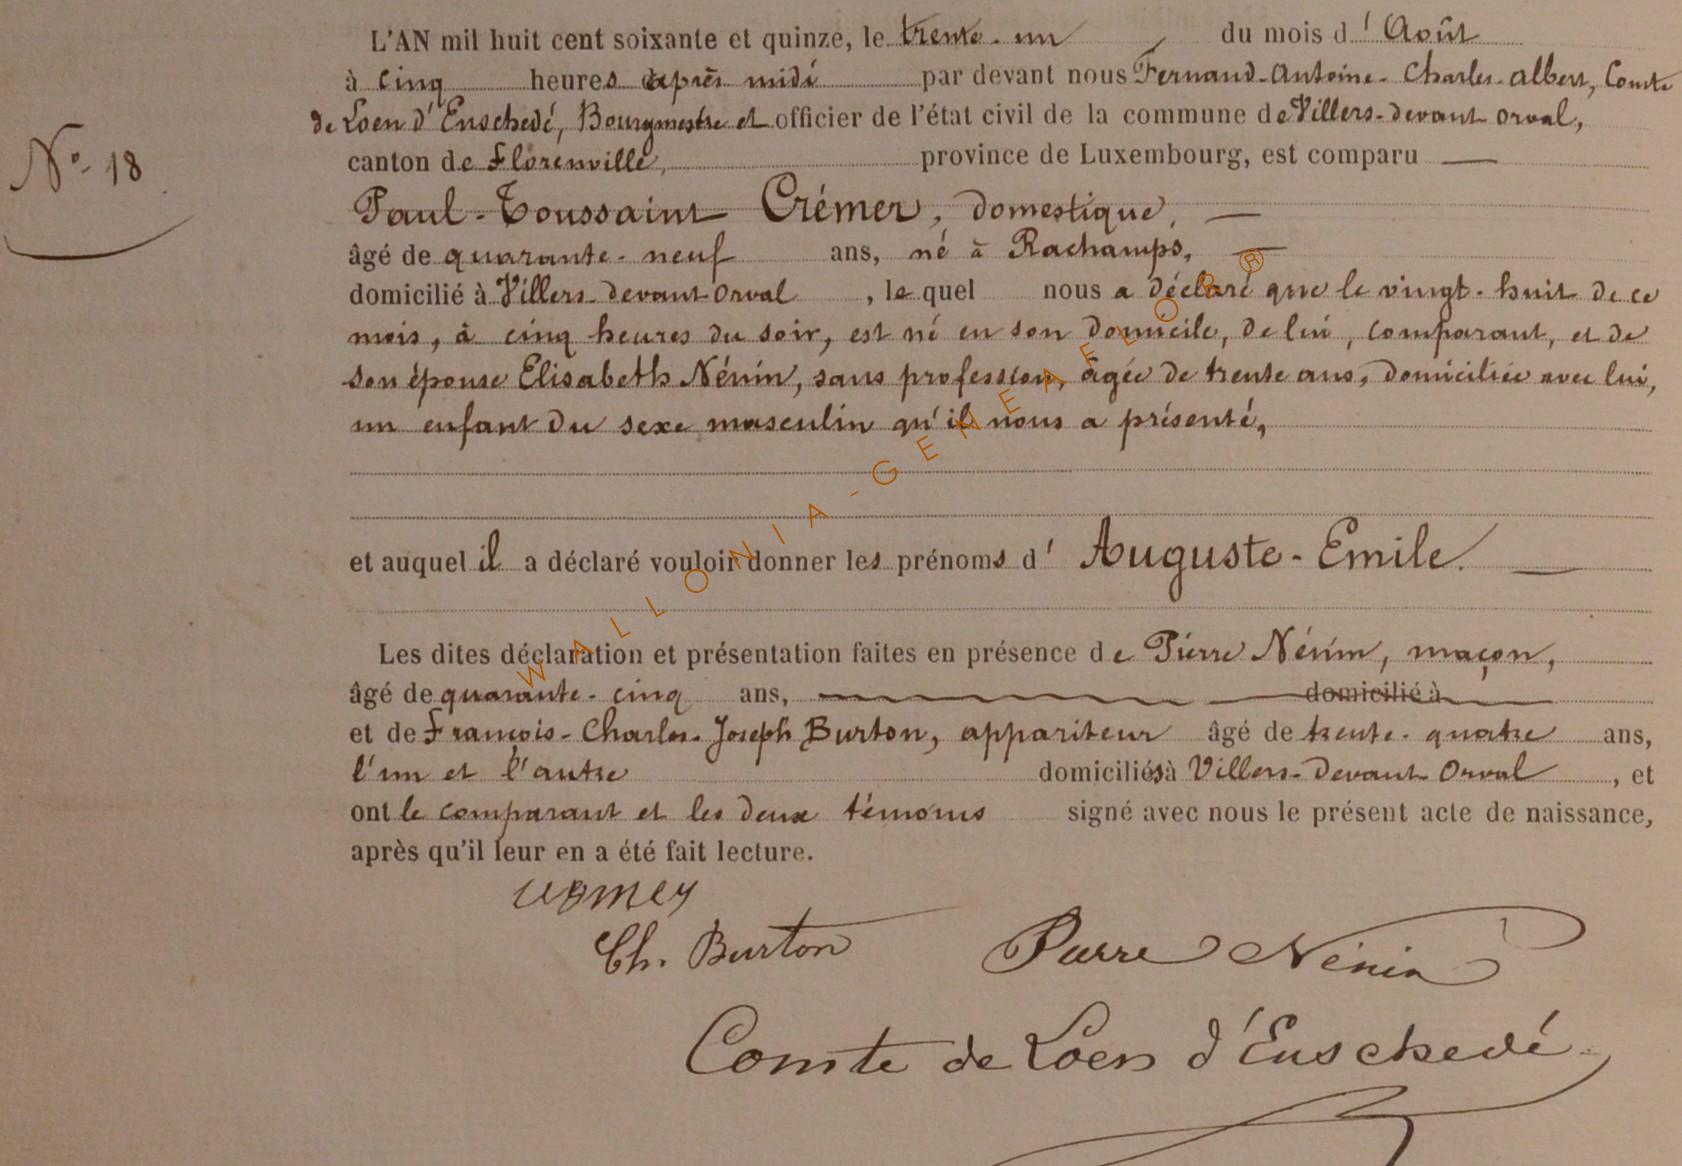 L'AN mil huit cent soixante et quinze, le trente-un du mois d'Août
à cinq heures après midi par devant nous Fernand-Antoine-Charles-Albert, Comte
de Loen d'Enschedé, Bourgmestre et officier de l'état civil de la commune de Villers-devant-Orval,
N° 18
canton de Florenville, province de Luxembourg, est comparu —
Paul-Toussaint Crémer, domestique, —
âgé de quarante-neuf ans, né à Rachamps, —
domicilié à Villers-devant-Orval, lequel nous a déclaré que le vingt-huit de ce
mois, à cinq heures du soir, est né en son domicile, de lui, comparant, et de
son épouse Elisabeth Nénin, sans profession, âgée de trente ans, domiciliée avec lui,
un enfant du sexe masculin qu'il nous a présenté,
et auquel il a déclaré vouloir donner les prénoms d' Auguste-Emile. —
Les dites déclaration et présentation faites en présence de Pierre Nénin, maçon,
âgé de quarante-cinq ans, domicilié à
et de François-Charles-Joseph Burton, appariteur âgé de trente-quatre ans,
l'un et l'autre domiciliés à Villers-devant-Orval, et
ont le comparant et les deux témoins signé avec nous le présent acte de naissance,
après qu'il leur en a été fait lecture.
Ch. Burton Pierre Nénin
Comte de Loen d'Enschedé
WALLONIA-GENEAFLOR®